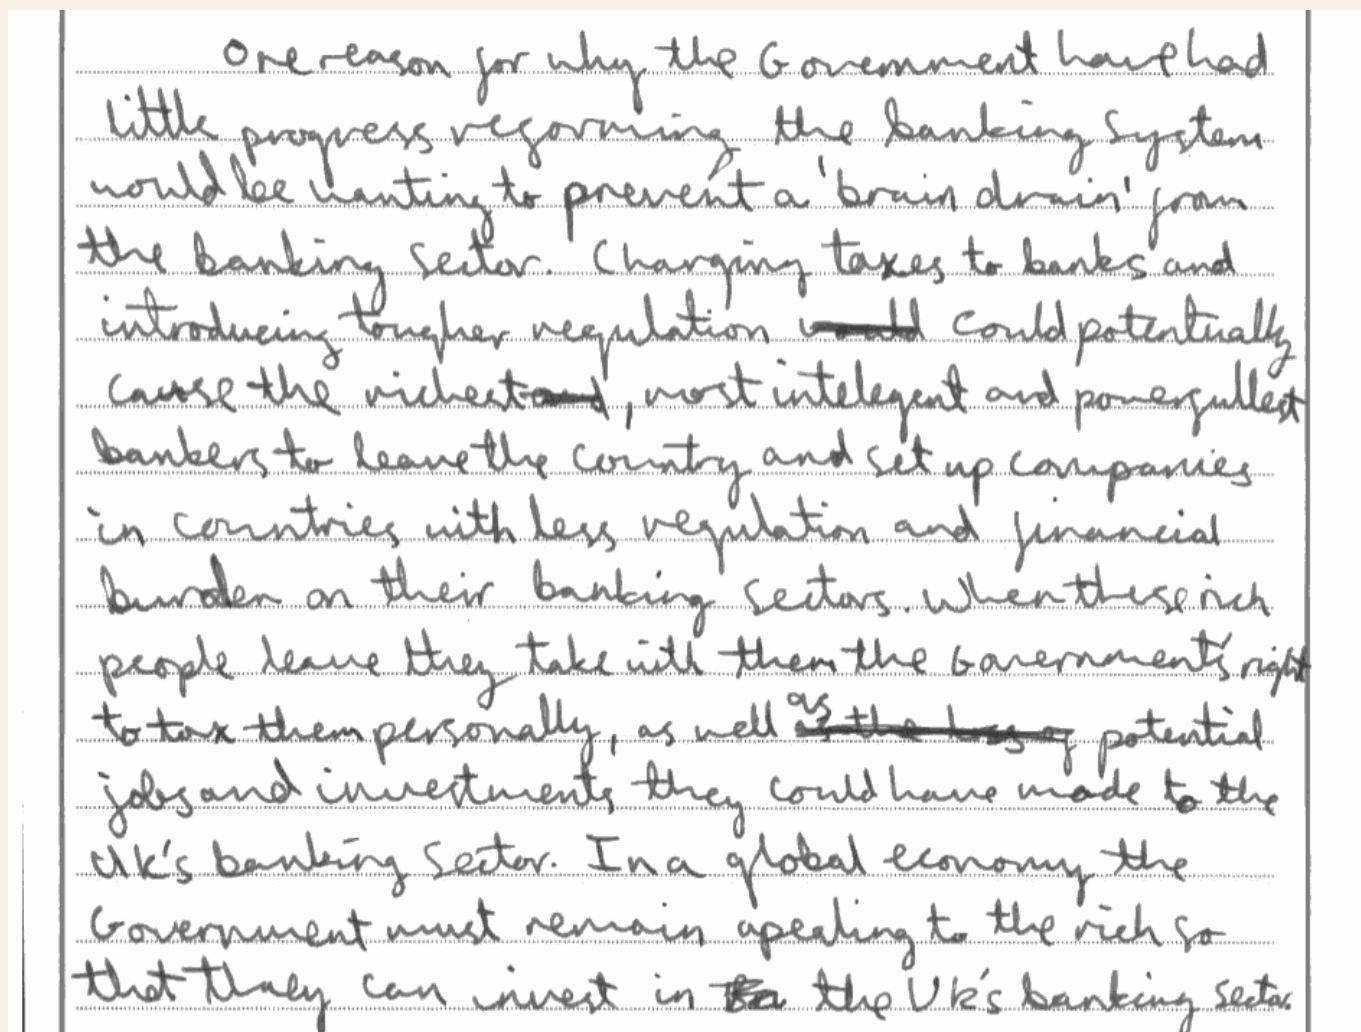 One reason for why the Government have had
little progress reforming the banking system
would be wanting to prevent a 'brain drain' from
the banking sector. Changing taxes to banks and
introducing tougher regulation would could potentually
cause the richest and, most intelegent and powerfullest
bankers to leave the country and set up companies
in countries with less regulation and financial
burden on their banking sectors. When these rich
people leave they take with them the Government's right
to tax them personally, as well as the loss of potential
jobs and investments, they could have made to the
UK's banking sector. In a global economy the
Government must remain apealing to the rich so
that they can invest in the UK's banking sector.